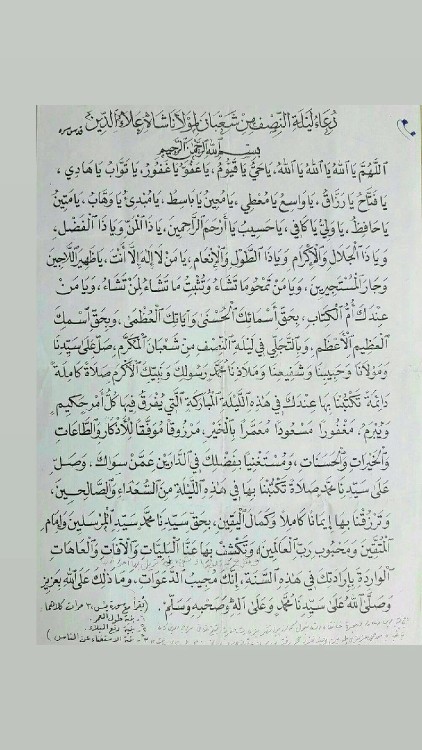 دُعَاءُ لَيْلَةِ النِّصْفِ مِنْ شَعْبَانَ لِمَوْلَانَا شَاهْ عَلَاءُ الدِّينْ قدس سره
بِسْمِ اللهِ الرَّحْمٰنِ الرَّحِيمِ
اَللّٰهُمَّ يَا اَللهُ يَا اَللهُ يَا اَللهُ، يَاحَيُّ يَا قَيُّومُ، يَاعَفُوُّ يَاغَفُورُ، يَا تَوَّابُ يَا هَادِي،
يَا فَتَّاحُ يَا رَزَّاقُ، يَا وَاسِعُ يَا مُعْطِي، يَا مُعِينُ يَا بَاسِطُ، يَا مُبْدِئُ يَا وَهَّابُ، يَا مَتِينُ
يَا حَافِظُ، يَا وَلِيُّ يَا كَافِي، يَا حَسِيبُ يَا أَرْحَمَ الرَّاحِمِينَ، يَا ذَا الْمَنِّ وَيَا ذَا الْفَضْلِ،
وَيَا ذَا الْجَلَالِ وَالْإِكْرَامِ وَيَا ذَا الطَّوْلِ وَالْإِنْعَامِ، يَا مَنْ لَا إِلٰهَ إِلَّا أَنْتَ، يَا ظَهِيرَ اللَّاجِينَ
وَجَارَ الْمُسْتَجِيرِينَ، وَيَا مَنْ تَمْحُو مَا تَشَاءُ وَتُثْبِتُ مَا تَشَاءُ لِمَنْ تَشَاءُ، وَيَا مَنْ
عِنْدَكَ أُمُّ الْكِتَابِ، بِحَقِّ أَسْمَائِكَ الْحُسْنَى وَآيَاتِكَ الْعُظْمَى، وَبِحَقِّ اسْمِكَ
الْعَظِيمِ الْأَعْظَمِ، وَبِالتَّجَلِّي فِي لَيْلَةِ النِّصْفِ مِنْ شَعْبَانَ الْمُكَرَّمِ، صَلِّ عَلَى سَيِّدِنَا
وَمَوْلَانَا وَحَبِيبِنَا وَشَفِيعِنَا وَمَلَاذِنَا مُحَمَّدٍ رَسُولِكَ وَنَبِيِّكَ الْأَكْرَمِ صَلَاةً كَامِلَةً
دَائِمَةً تَكْتُبُنَا بِهَا عِنْدَكَ فِي هٰذِهِ اللَّيْلَةِ الْمُبَارَكَةِ الَّتِي يُفْرَقُ فِيهَا كُلُّ أَمْرٍ حَكِيمٍ
وَيُبْرَمُ، مَغْفُورًا مَسْعُودًا مُعَمَّرًا بِالْخَيْرِ، مَرْزُوقًا مُوَفَّقًا لِلْأَذْكَارِ وَالطَّاعَاتِ
وَالْخَيْرَاتِ وَالْحَسَنَاتِ، وَمُسْتَغْنِيًا بِفَضْلِكَ فِي الدَّارَيْنِ عَمَّنْ سِوَاكَ، وَصَلِّ
عَلَى سَيِّدِنَا مُحَمَّدٍ صَلَاةً تَكْتُبُنَا بِهَا فِي هٰذِهِ اللَّيْلَةِ مِنَ السُّعَدَاءِ وَالصَّالِحِينَ،
وَتَرْزُقُنَا بِهَا إِيمَانًا كَامِلًا وَكَمَالَ الْيَقِينِ، بِحَقِّ سَيِّدِنَا مُحَمَّدٍ سَيِّدِ الْمُرْسَلِينَ وَإِمَامِ
الْمُتَّقِينَ وَمَحْبُوبِ رَبِّ الْعَالَمِينَ، وَتَكْشِفُ بِهَا عَنَّا الْبَلِيَّاتِ وَالْآفَاتِ وَالْعَاهَاتِ
الْوَارِدَةِ بِإِرَادَتِكَ فِي هٰذِهِ السَّنَةِ، إِنَّكَ مُجِيبُ الدَّعَوَاتِ، وَمَا ذٰلِكَ عَلَى اللهِ بِعَزِيزٍ
وَصَلَّى اللهُ عَلَى سَيِّدِنَا مُحَمَّدٍ وَعَلَى آلِهِ وَصَحْبِهِ وَسَلِّمْ. (يُقرأ مع سورة يس ٣ مرات كلاهما
١- بنية طول العمر
٢- بنية دفع البلاء
٣- بنية الاستغناء عن الناس)